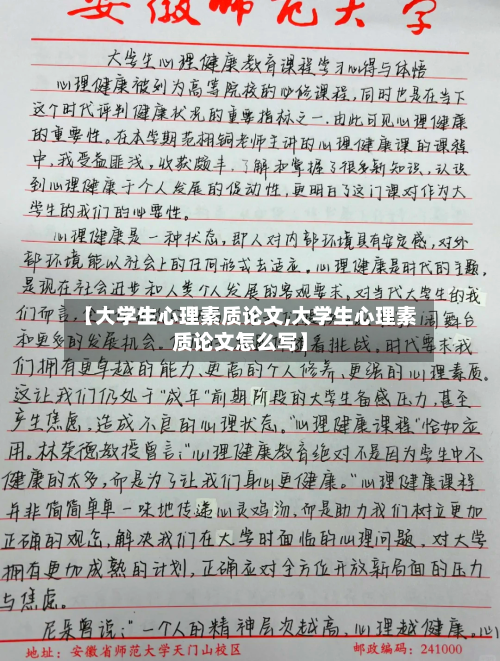 安徽师范大学
大学生心理健康教育课程学习心得与体悟
心理健康被列为高等院校的必修课程，同时也是在当下
这个时代评判健康状况的重要指标之一，由此可见心理健康
的重要性。在本学期范栩铜老师主讲的心理健康课的课程
中，我受益匪浅，收获颇丰，了解和掌握了很多新知识，认识
到心理健康于个人发展的促动性，更明白了这门课对作为大
学生的我们的必要性。
心理健康是一种状态，即人对内部环境具有安定感，对外
部环境能以社会上的任何形式去适应。心理健康是时代的主题，
是现在社会进步和人类个人发展的客观要求。对当代大学生的我
们而言，
阔舞台
【大学生心理素质论文,大学生心理素
质论文怎么写】
和更多的发展机会，
着挑战。时代要求我
们拥有更卓越的能力、更高的个人修养、更强的心理素质。
这让我们仍处于“成年”前期阶段的大学生备感压力，甚至
产生焦虑，造成不良的心理状态。“心理健康课程”恰如应
用。林荣德教授曾言：“心理健康教育绝对不是因为学生中不
健康的太多，而是为了让我们身心更健康。”心理健康课程
并非简简单单一味地传递心灵鸡汤，而是助力我们树立更加
正确的观念，解决我们在大学时面临的心理问题，对大学
拥有更加成熟的计划，正确应对全方位开放新局面的压力
与焦虑。
尼采曾说：“一个人的精神层次越高，心理越健康。心
地址：安徽省师范大学天门山校区 邮政编码：241000